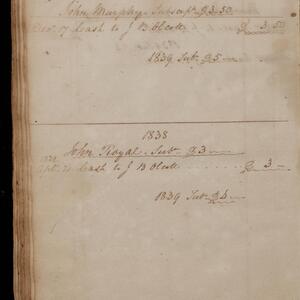 John Murphy Subscrpt. $3.50
Nov. 17 Cash to J B Olcott $ 3.50
1839 Sub. $5 —
1838
John Royal. Sub. $3 —
Cash to J B Olcott $ 3 —
1839 Sub. $4 —